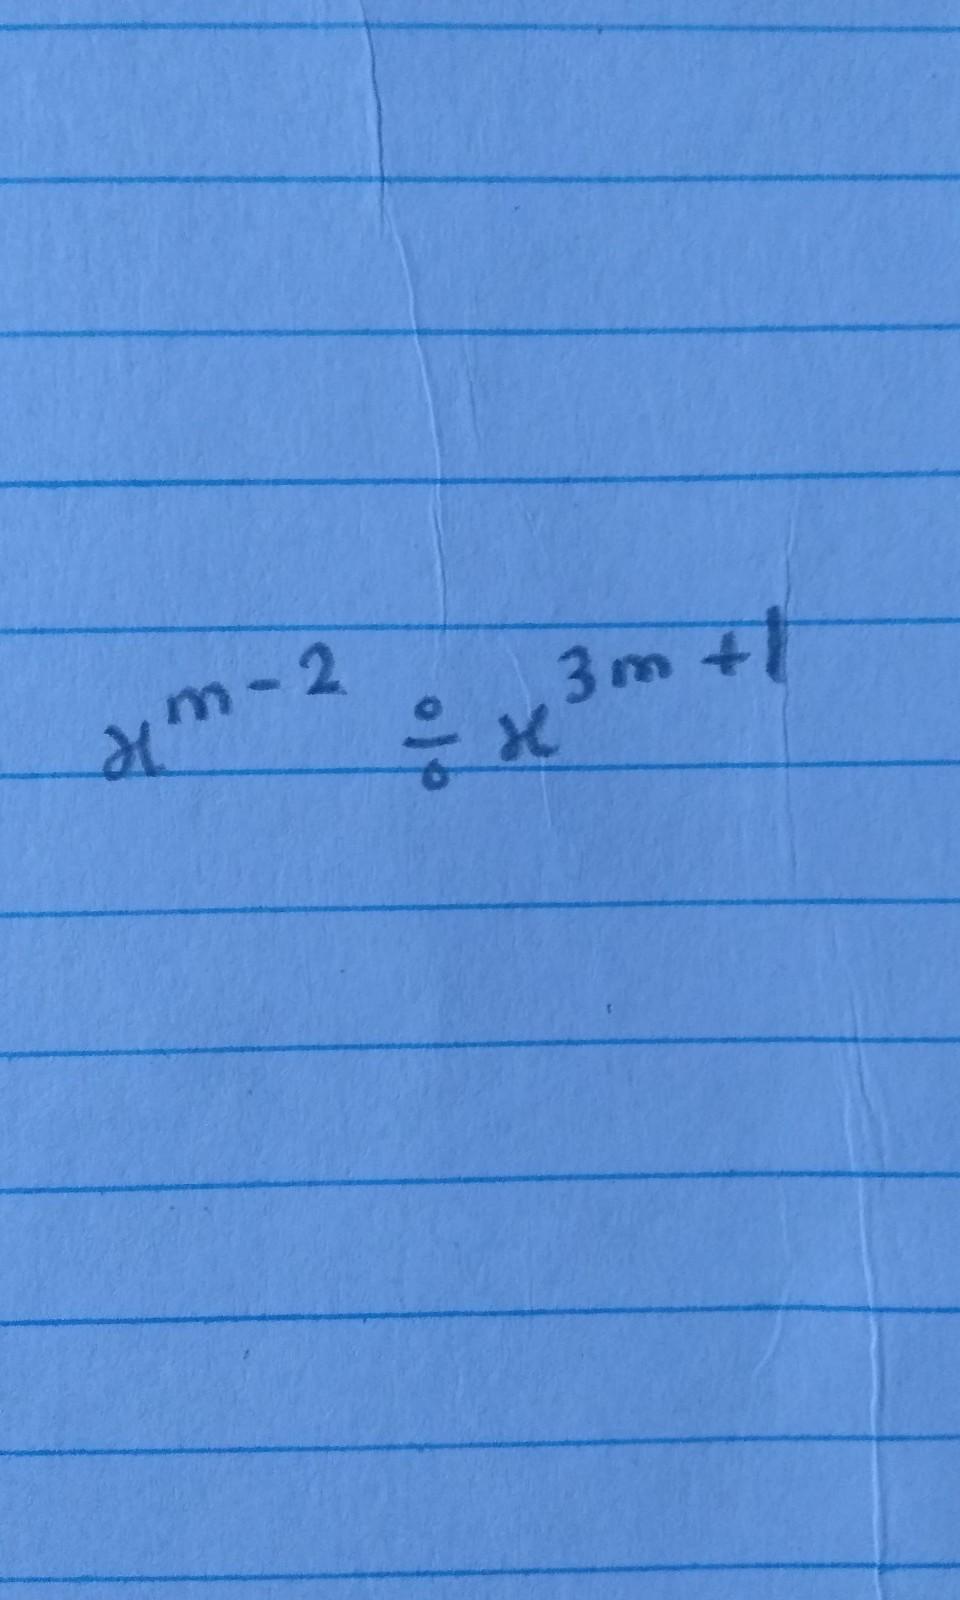 x^{m-2} ÷ x^{3m+1}